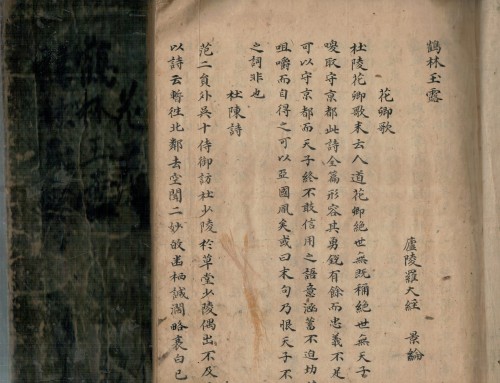 鶴林玉露
廬陵羅大經 景綸
花卿歌
杜陵花卿歌末云人道花卿絕世無既稱絕世無天子
喚取守京都此詩全篇形容其勇銳有餘而忠義不足
可以守京都而天子終不敢信用之語意涵蓄不迫切
咀嚼而自得之可以亞國風矣或曰末句乃恨天子不
之詞非也
杜陳詩
范二員外吳十侍御訪杜少陵於草堂少陵偶出不及
以詩云暫往北鄰去空聞二妙故幽栖誠濶略衰白已